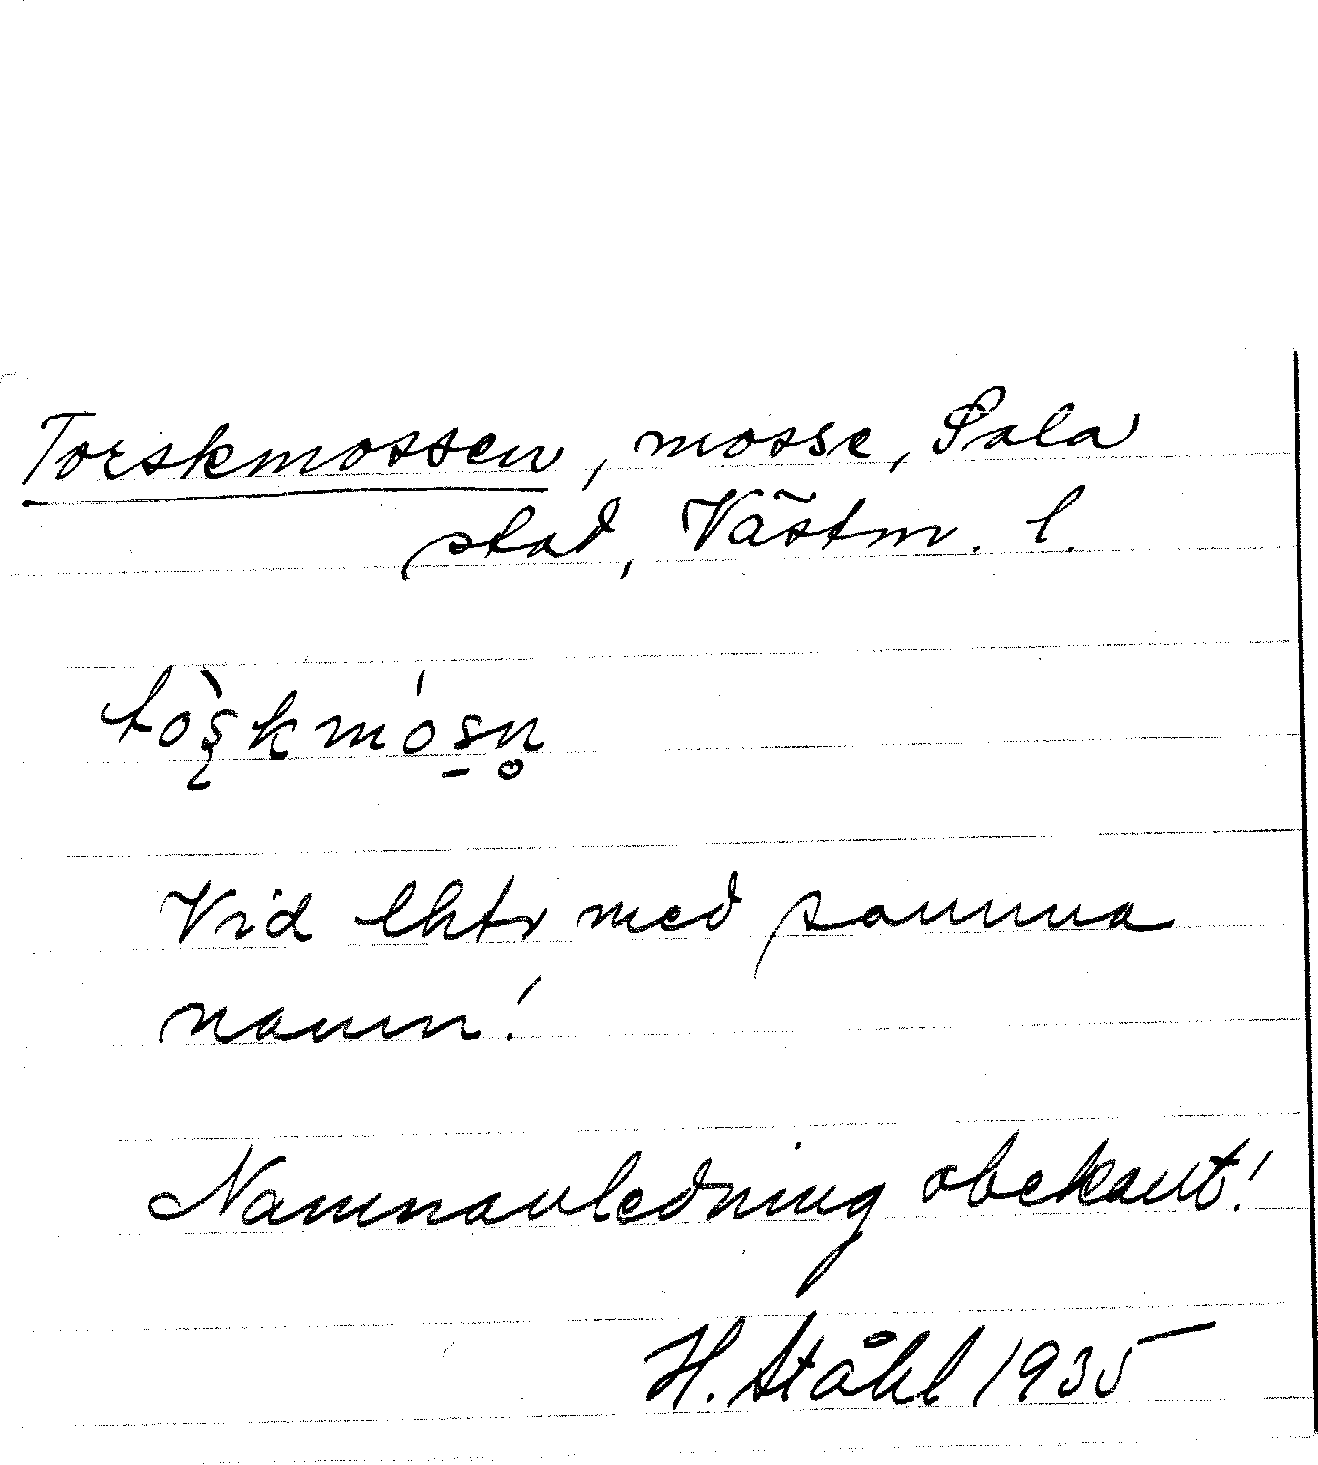 Torskmossen, mosse, Sala
stad, Västm. l.
tò̀ʂkmós̠n̥
Vid lhtr med samma
namn!
Namnavledning obekant!
H. Ståhl 1935